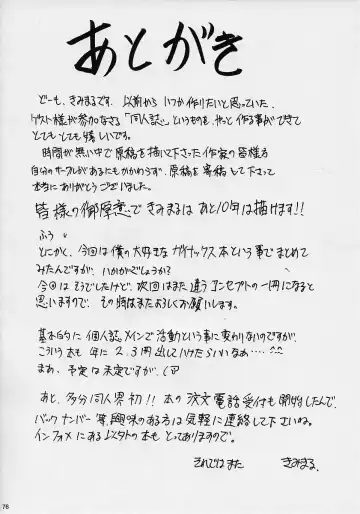 あとがき
どーも、きみまるです。以前からいつか作りたいと思っていた、
ゲスト様が参加なさる「同人誌」というものを、やっと作る事ができて
とてもとても嬉しいです。
時間が無い中で原稿を描いて下さった作家の皆様方
自分のサークルがあるにもかかわらず、原稿を寄稿して下さって
本当にありがとうございました。
皆様の御厚意できみまるはあと10年は描けます!!
ふぅ
とにかく、今回は僕の大好きなガイナックス本という事でまとめて
みたんですが、いかがでしょうか?
今回はそうでしたけど、次回はまた違うコンセプトの一冊になると
思いますので、その時はまたよろしくお願いします。
基本的に個人誌メインで活動という事に変わりないのですが、
こういう本も年に2,3冊出していけたらいいなぁ…^^
まぁ、予定は未定ですが。
あと、多分同人界初!!本の注文電話受付も開始したんで、
バックナンバー等、興味のある方は気軽に連絡して下さいね。
インフォメにある以外の本もとってありますので。
それではまた きみまる
78